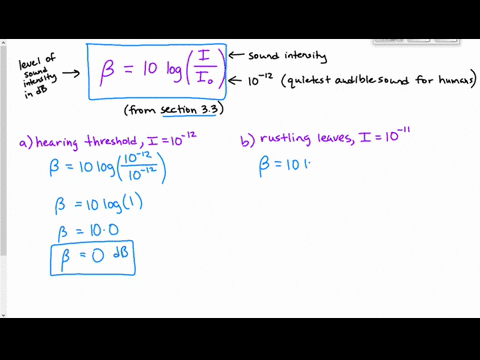 level of
sound
intensity
in dB
β = 10 log(I/I₀)
sound intensity
10⁻¹² (quietest audible sound for humans)
(from section 3.3)
a) hearing threshold, I = 10⁻¹²
β = 10 log(10⁻¹²/10⁻¹²)
β = 10 log(1)
β = 10·0
β = 0 dB
b) rustling leaves, I = 10⁻¹¹
β = 10 l